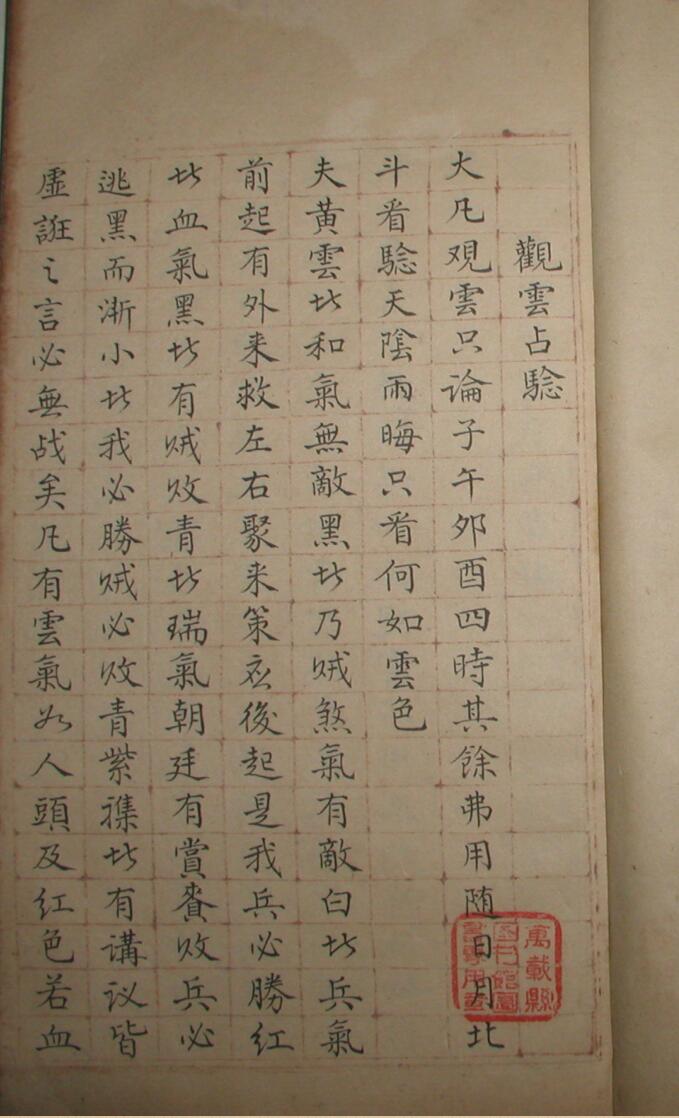 觀雲占騐
大凡观雲只論子午夘酉四時其餘弗用随日月北
斗看騐天陰雨晦只看何如雲色
夫黃雲此和氣無敵黑此乃贼煞氣有敵白此兵氣
前起有外来救左右聚来策应後起是我兵必勝红
此血氣黑此有贼败青此瑞氣朝廷有賞赉败兵必
逃黑而渐小此我必勝贼必败青紫襍此有講议皆
虚誑之言必無战矣凡有雲氣如人頭及红色若血
萬載縣